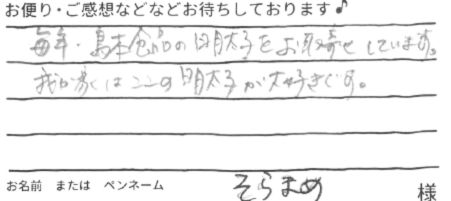 お便り・ご感想などなどお待ちしております♪
毎年、島本食品の明太子をお取寄せしています。
我が家はここの明太子が大好きです。
お名前 または ペンネーム そらまめ 様